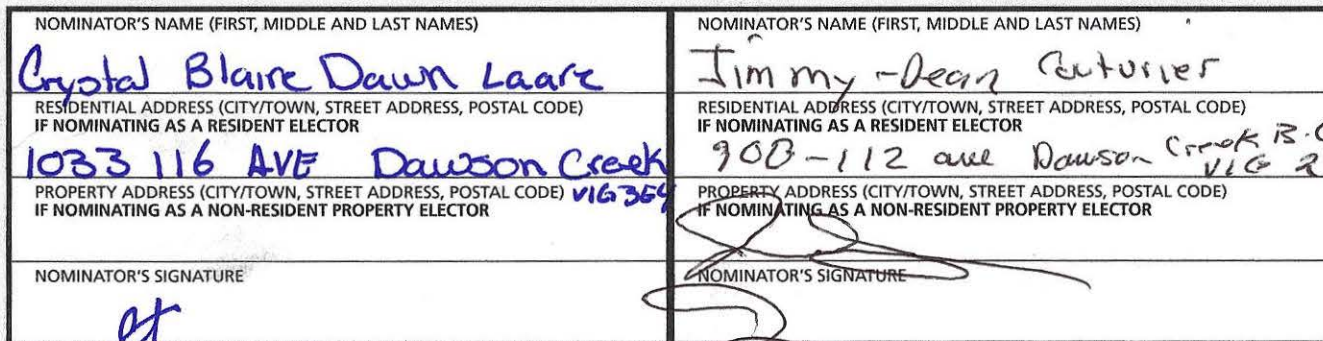 NOMINATOR'S NAME (FIRST, MIDDLE AND LAST NAMES)
Crystal Blaire Dawn
RESIDENTIAL ADDRESS (CITY/TOWN, STREET ADDRESS, POSTAL CODE)
IF NOMINATING AS A RESIDENT ELECTOR
1033 116 AVE Dawson Creek
PROPERTY ADDRESS (CITY/TOWN, STREET ADDRESS, POSTAL CODE) V1G 3G4
IF NOMINATING AS A NON-RESIDENT PROPERTY ELECTOR
NOMINATOR'S SIGNATURE
NOMINATOR'S NAME (FIRST, MIDDLE AND LAST NAMES)
Jimmy-Dean Couturier
RESIDENTIAL ADDRESS (CITY/TOWN, STREET ADDRESS, POSTAL CODE)
IF NOMINATING AS A RESIDENT ELECTOR
-112 ave Dawson Creek B.C
V1G 2
PROPERTY ADDRESS (CITY/TOWN, STREET ADDRESS, POSTAL CODE)
IF NOMINATING AS A NON-RESIDENT PROPERTY ELECTOR
NOMINATOR'S SIGNATURE